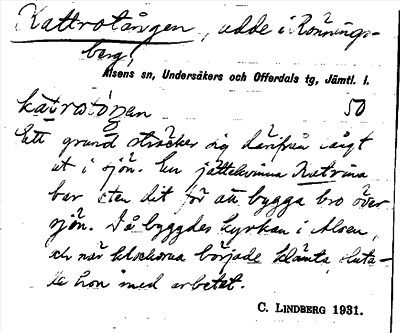 Kattrotången, udde i Rönnings-
berg,
Alsens sn, Undersåkers och Offerdals tg, Jämtl. l.
katrotåŋŋen 50
Ett grund sträcker sig därifrån långt
ut i sjön. En jättekvinna Katrina
bar sten dit för att bygga bro över
sjön. Då byggdes kyrkan i Alsen,
och när klockorna började klämta, sluta-
de hon med arbetet.
C. LINDBERG 1931.